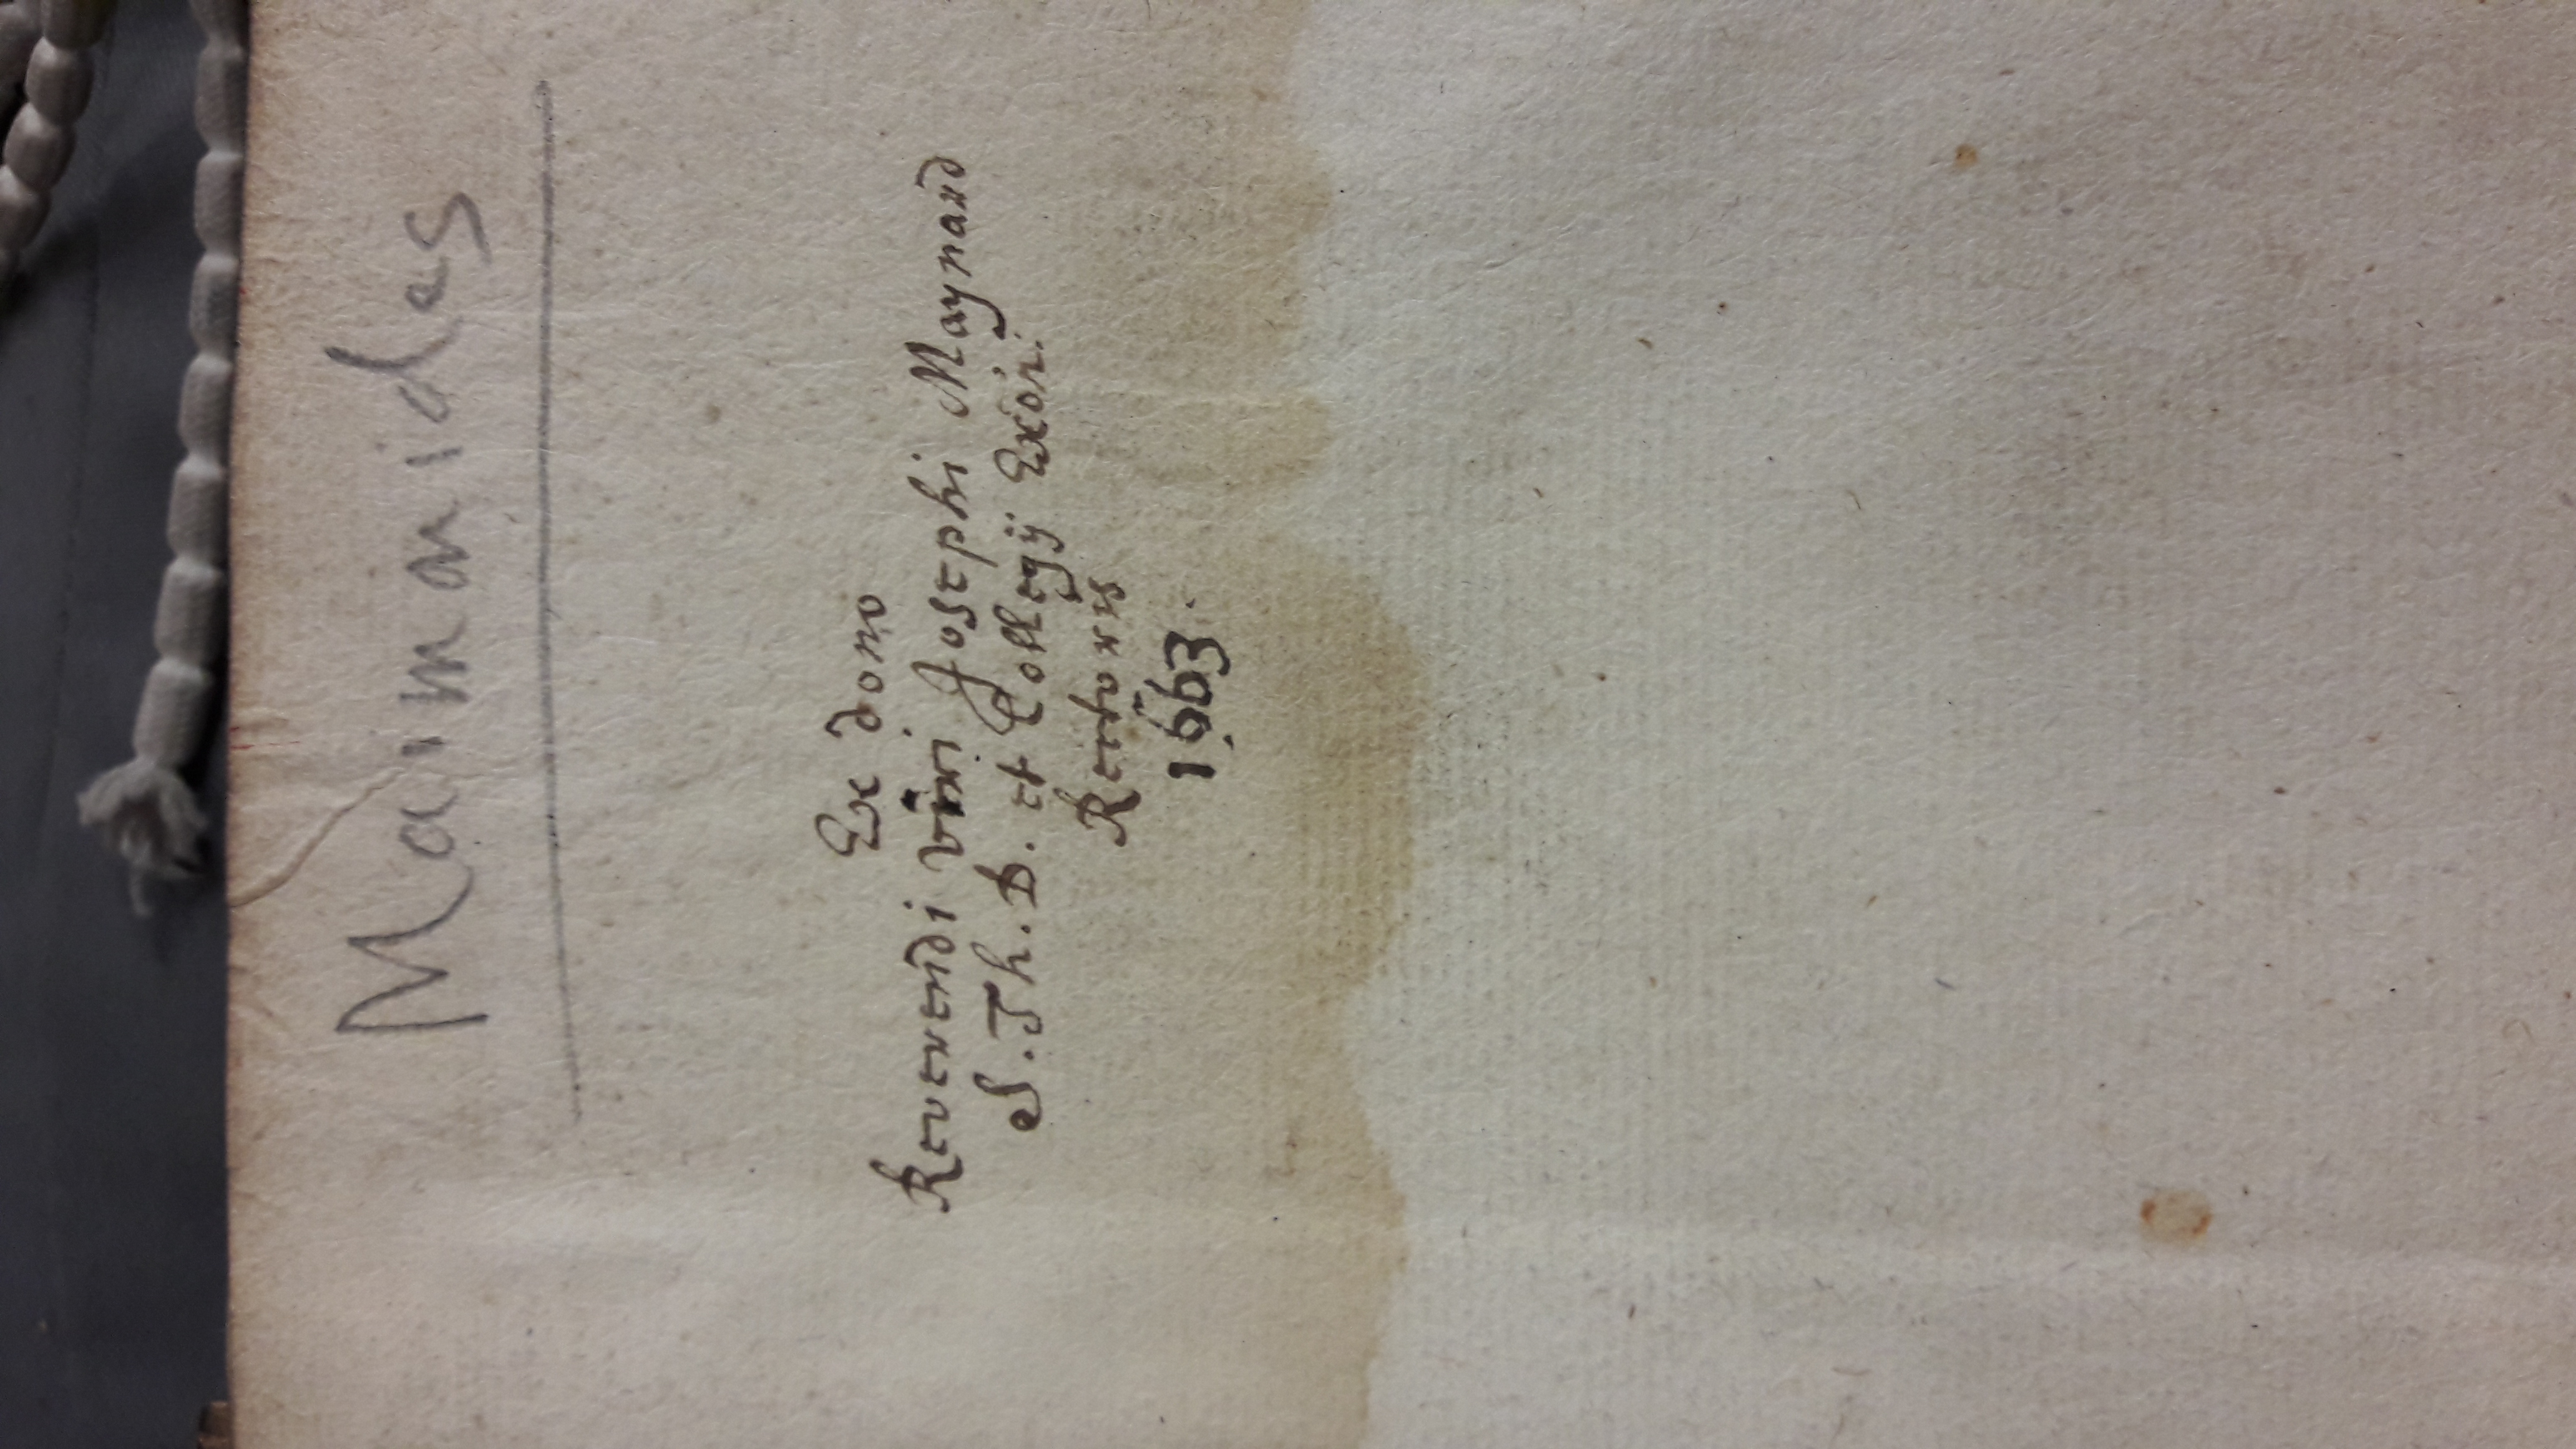 Maimonides
Ex dono
Reverendi viri Josephi Maynard
S. Th. B. et Collegij Exon:
Rectoris
1663.